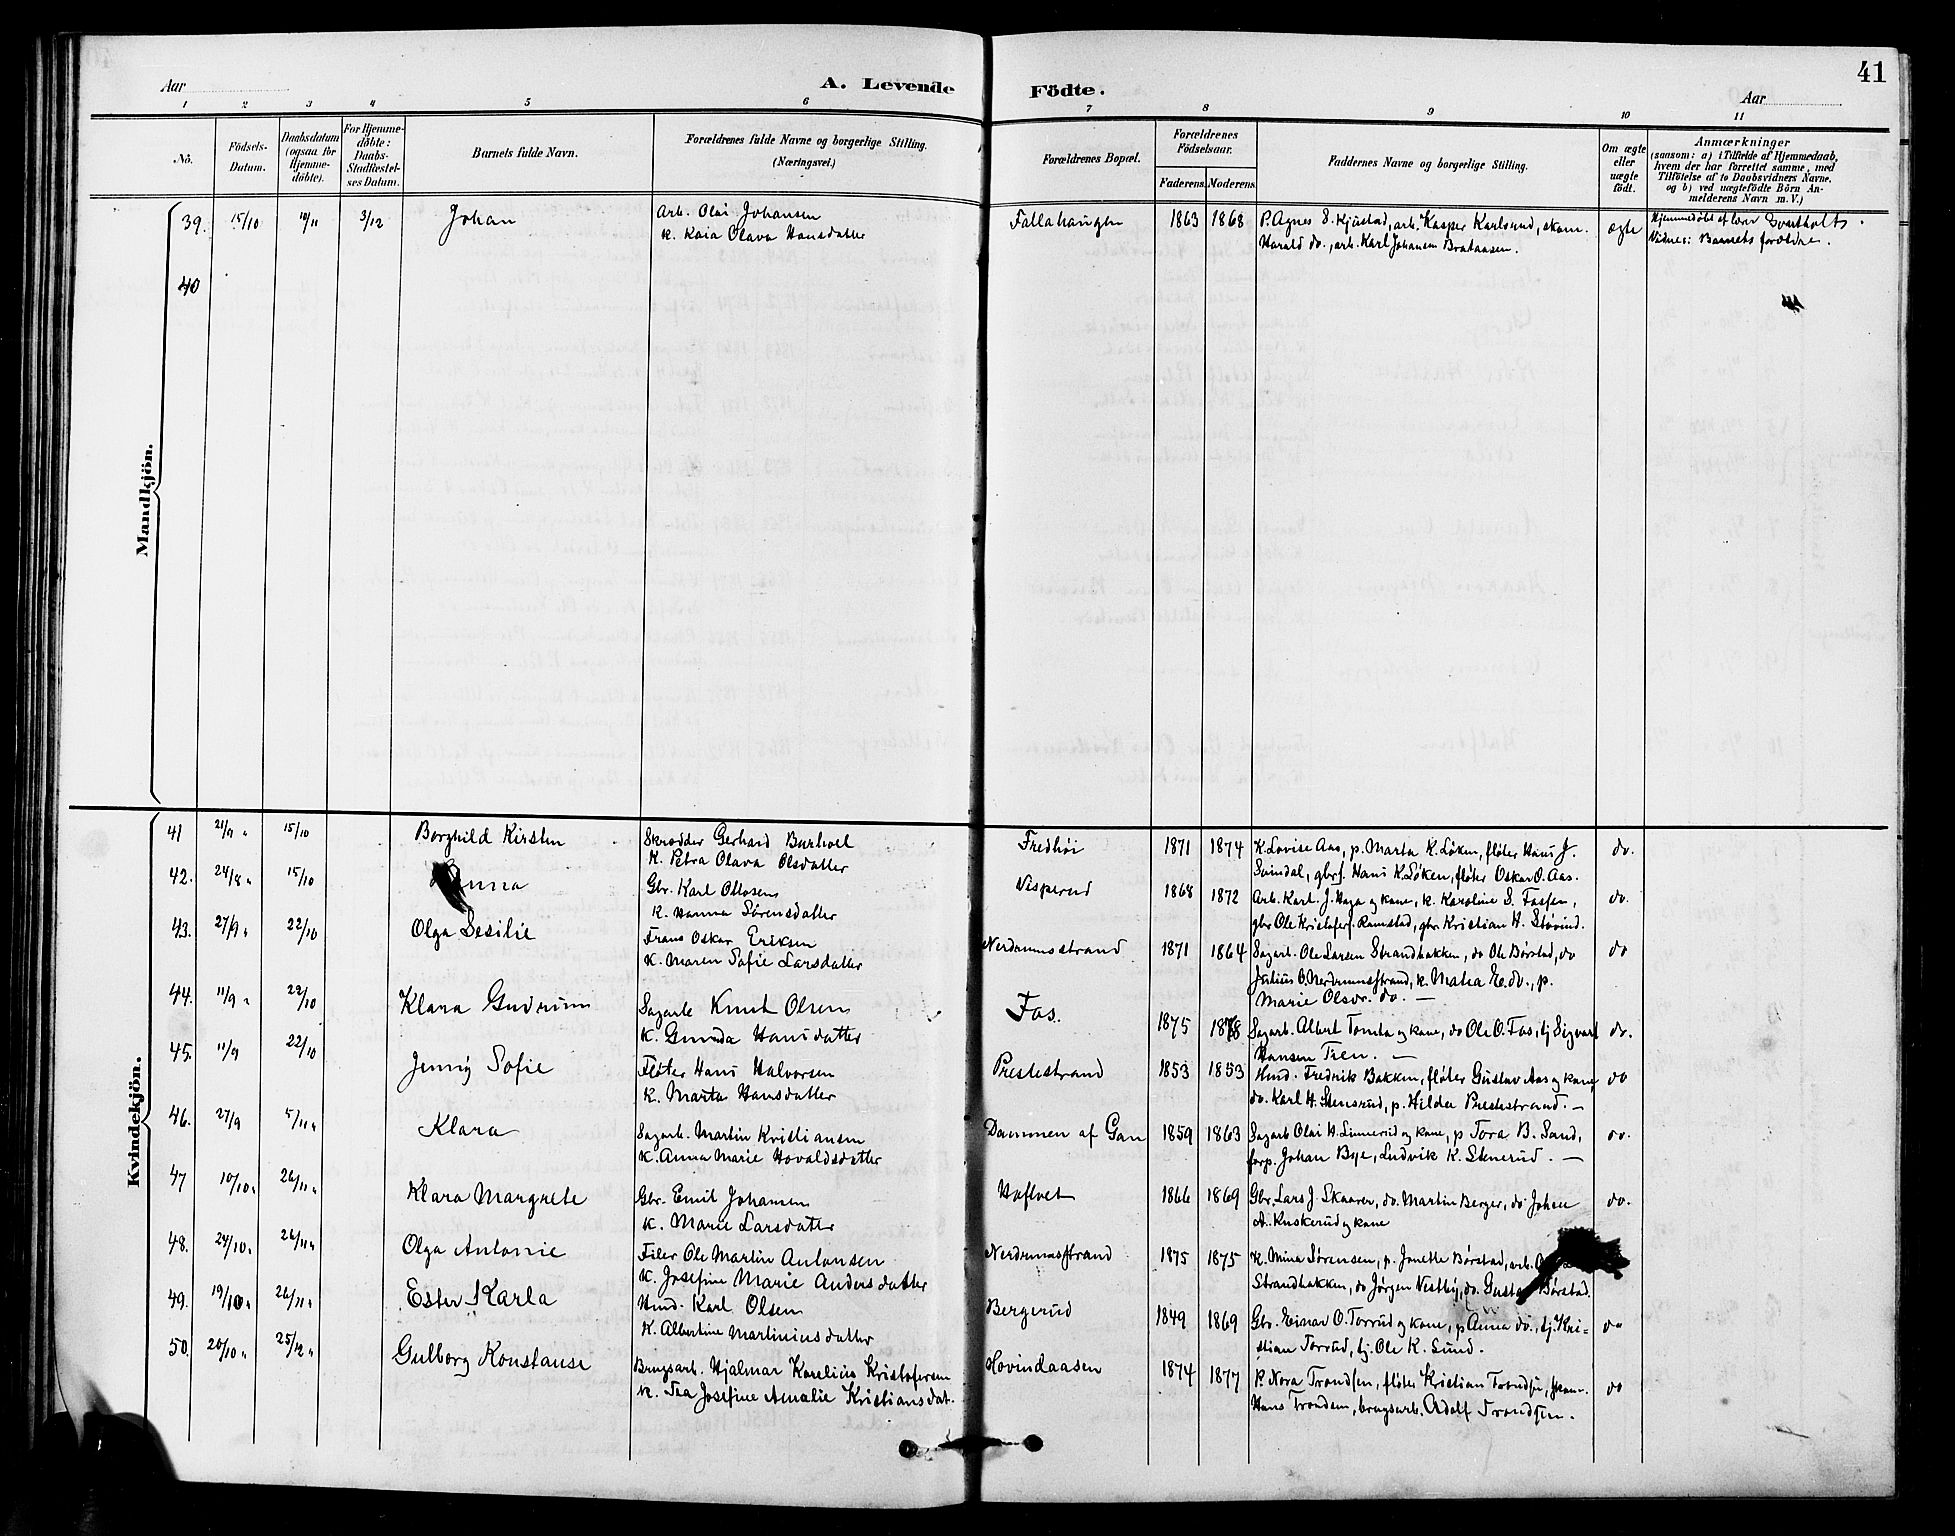 41
Aar
A. Levende
Födte.
Aar
1 2 3 4 5 6 7 8 9 10 11
No.
Födsels-Datum.
Daabsdatum (ogsaa for Hjemme-döbte).
For Hjemme-döbte: Daabs-Stadfæstel-ses Datum.
Barnets fulde Navn.
Forældrenes fulde Navne og borgerlige Stilling.
(Næringsvei.)
Forældrenes Bopæl.
Forældrenes Födselsaar.
Faderens. Moderens.
Faddernes Navne og borgerlige Stilling.
Om ægte eller uægte födt.
Anmærkninger
(saasom: a) i Tilfælde af Hjemmedaab,
hvem der har forrettet samme, med
Tilföielse af to Daabsvidners Navne,
og b) ved uægtefödte Börn An-
melderens Navn m. V.)
Mandkjön.
39. 15/10 10/11 3/12 Johan Arb. Olai Johansen Fallahaugen 1863 1868 P. Agnes S. Kjustad, arb. Kasper Karlsrud, skom. ægte Hjemmedøbt af Lovr Svartholt
K. Kaia Olava Hansdatter Harald do., arb. Karl Johansen Brataasen. Vidner: Barnets forældre.
40
Kvindekjön.
41 21/9 15/10 Borghild Kirsten Skrædder Gerhard Burhoel Fredhøi 1871 1874 K. Lovise Aas, p. Marta K. Løken, fløter Hans J. do.
K. Petra Olava Olsdatter Svindal, gbrf. Hans K. Løken, fløter Oskar O. Aas.
42. 24/8 15/10 Anna Gbr. Karl Ottosen Visperud 1868 1872 Arb. Karl J. Haga og kone, k. Karoline S. Fosser, do.
K. Hanna Sørensdatter gbr Ole Kristofers. Ramstad, gbr. Kristian H. Støvind.
43. 27/9 22/10 Olga Sesilie Frans Oskar Eriksen Nerdrumsstrand 1871 1864 Sagarb. Ole Larsen Strandbakken, do Ole Børstad, do do
K. Maren Sofie Larsdatter Julius O. Nerdrumsstrand, k. Matea E. do., p.
Marie Olsdr. do. —
44. 11/9 22/10 Klara Gudrun Sagarb. Knut Olsen Fos. 1875 1878 Sagarb. Albert Tomta og kone, do Ole O. Fos, tj Sigvart do.
K. Gunda Hansdatter Hansen Tien. —
45. 11/9 22/10 Jenny Sofie Fløter Hans Halvorsen Prestestrand 1853 1853 Hmd. Fredrik Bakken, fløter Gustav Aas og kone do
K. Marta Hansdatter do. Karl H. Stensrud, p. Hilda Prestestrand. —
46. 27/9 5/11 Klara Sagarb. Martin Kristiansen Dammen af Gan 1859 1863 Sagarb Olai H. Linnerud og kone, p Tora B. Sand, do.
K. Anna Marie Hovaldsdatter forp. Johan Bye, Ludvik K. Stenerud. —
47 10/10 26/11 Klara Margrete Gbr. Emil Johansen Hoflvet 1866 1869 Gbr. Lars J. Skaarer, do. Martin Berger, do Johan do.
K. Marie Larsdatter A. Kuskerud og kone
48. 24/10 26/11 Olga Antonie Filer Ole Martin Antonsen Nerdrumsstrand 1875 1875 K. Mina Sørensen, p. Jonette Børstad, arb.
K. Josefine Marie Andersdatter Strandbakken, do Jørgen Vestby, do. Gustav Børstad.
49. 19/10 26/11 Ester Karla Hmd. Karl Olsen Bergerud 1849 1869 Gbr. Einar O. Torrud og kone, p Anna do., tj. Kri- do
K. Albertine Martiniusdatter stian Torrud, tj. Ole K. Lund.
50. 20/10 25/12 Gulborg Konstanse Brugsarb. Hjalmar Karelius Kristofersen Hovindaasen 1874 1877 P. Nora Trondsen, fløter Kristian Trondsen, skom. do
K. Tea Josefine Amalie Kristiansdat. Hans Trondsen, brugsarb. Adolf Trondsen.